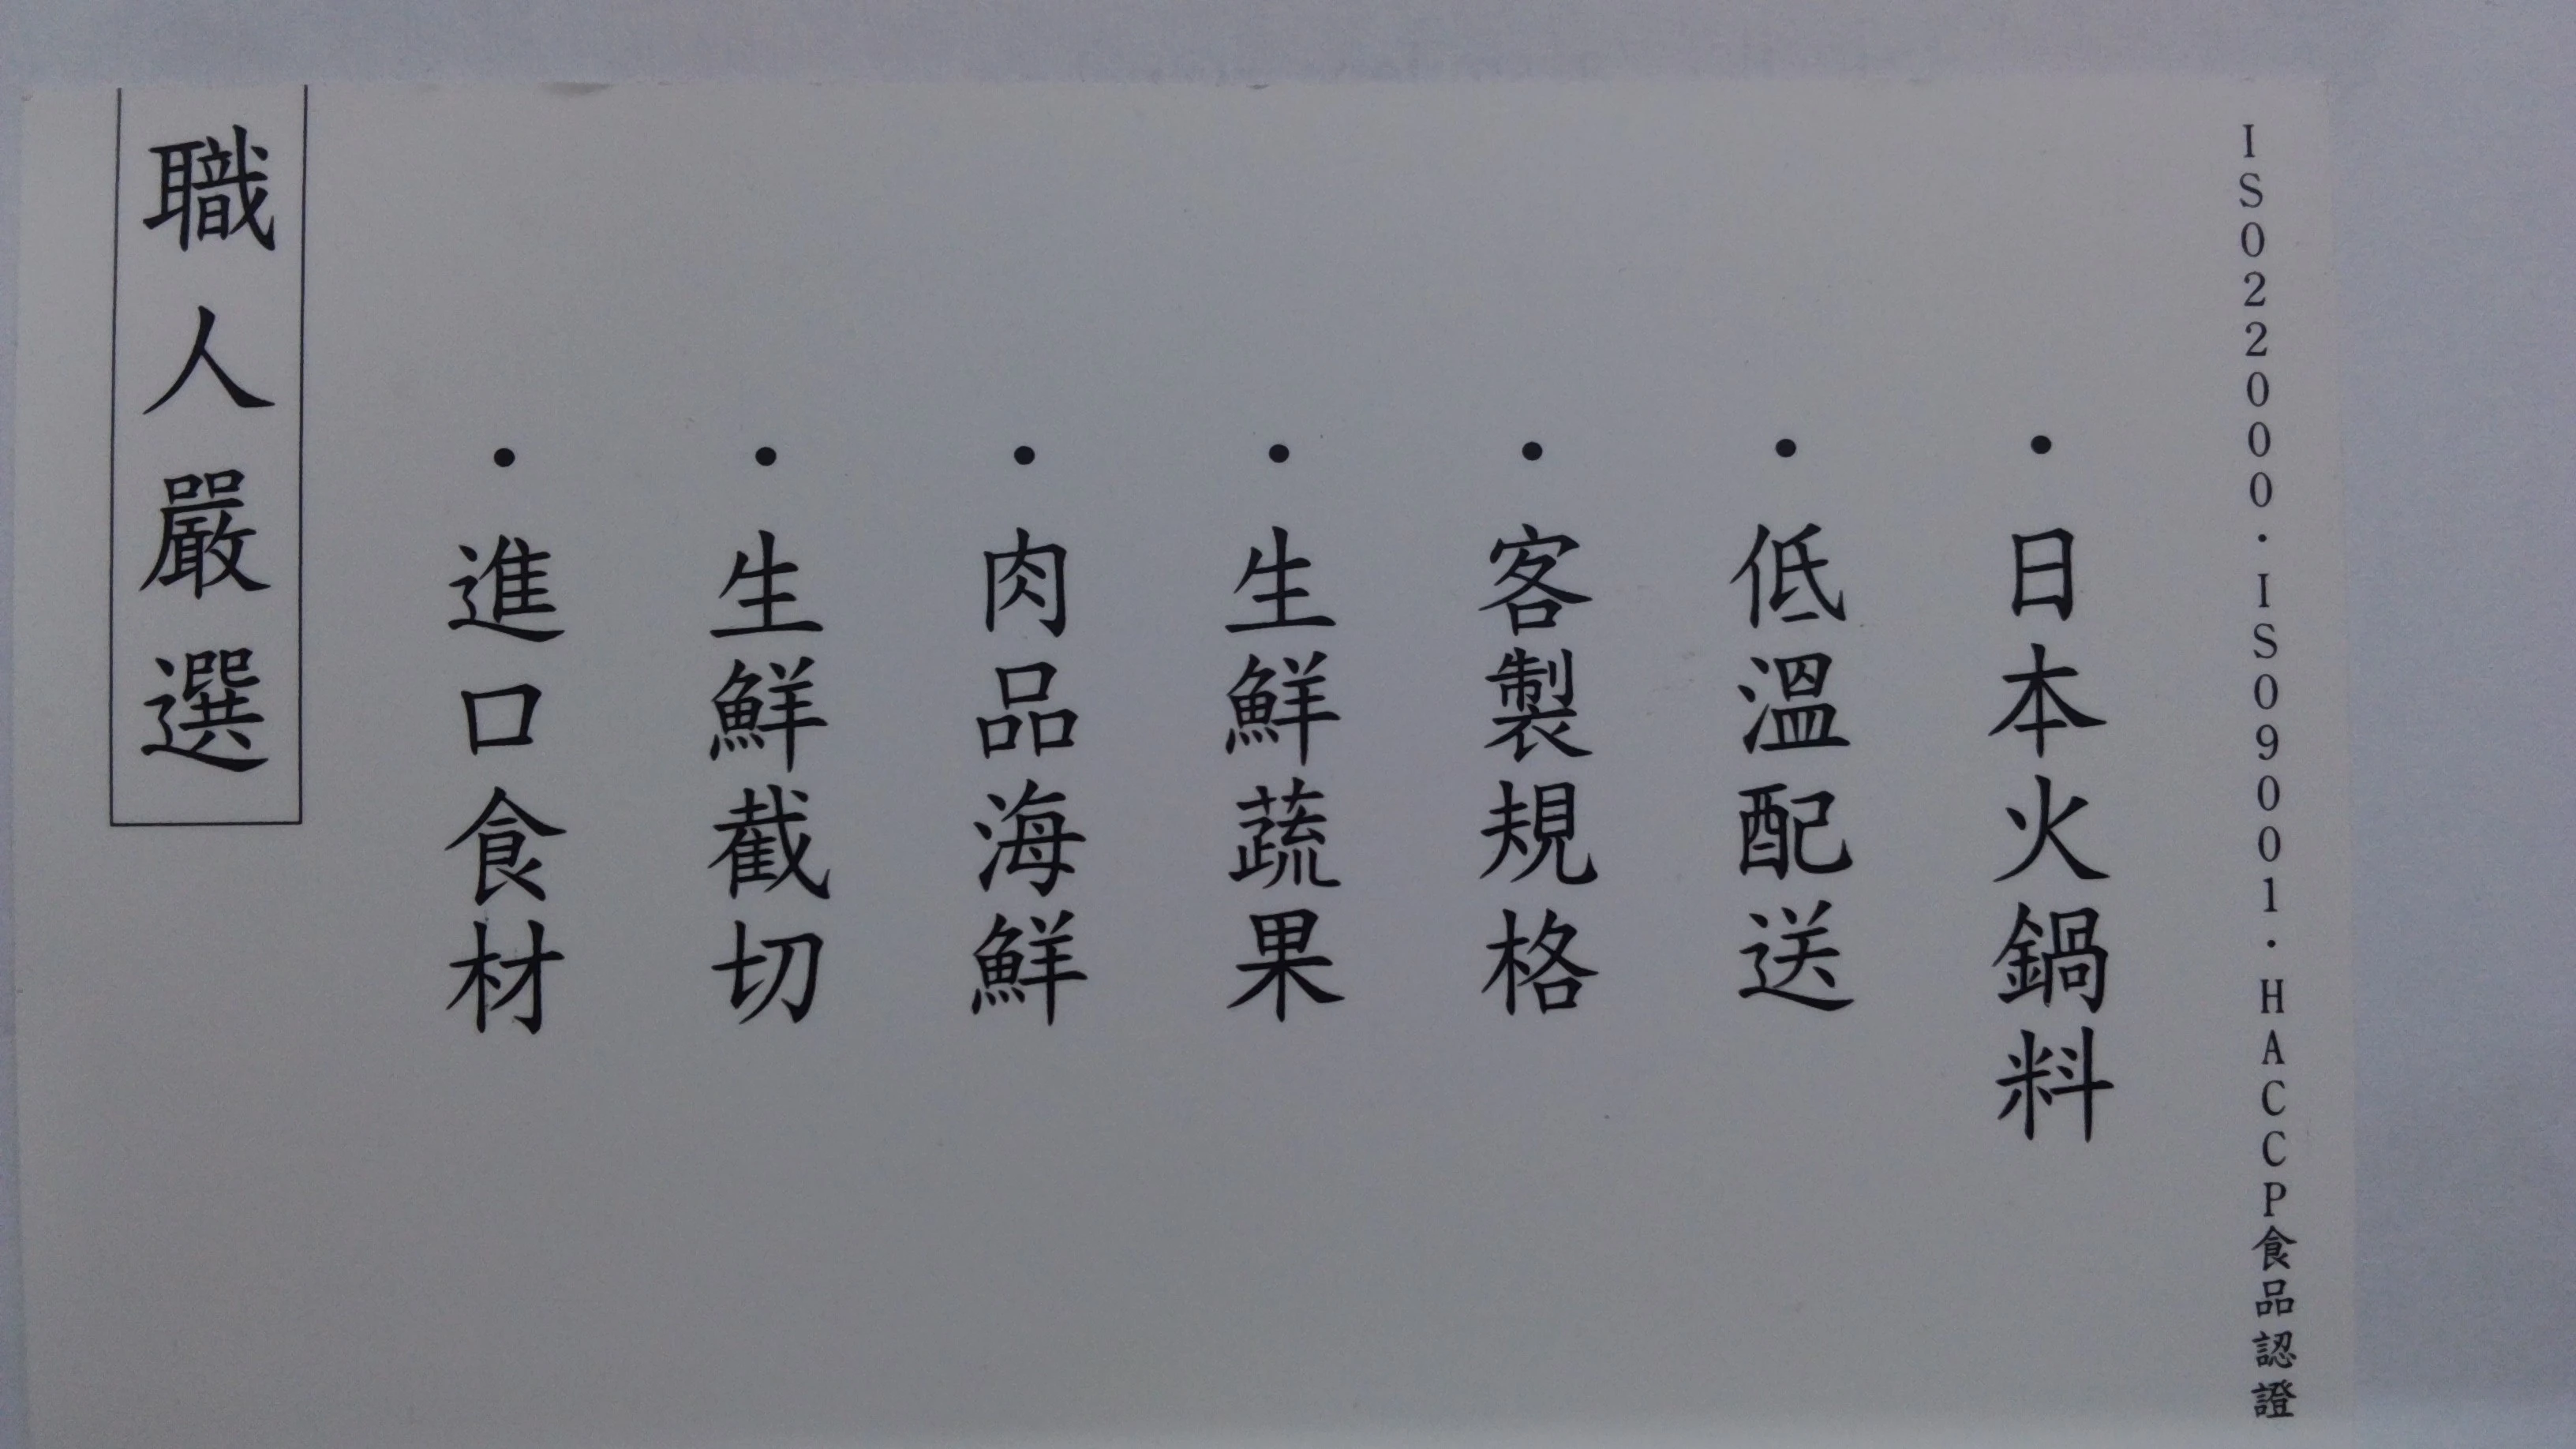 職人嚴選
・進口食材
・生鮮截切
・肉品海鮮
・生鮮蔬果
・客製規格
・低溫配送
・日本火鍋料
ISO22000・ISO9001・HACCP食品認證